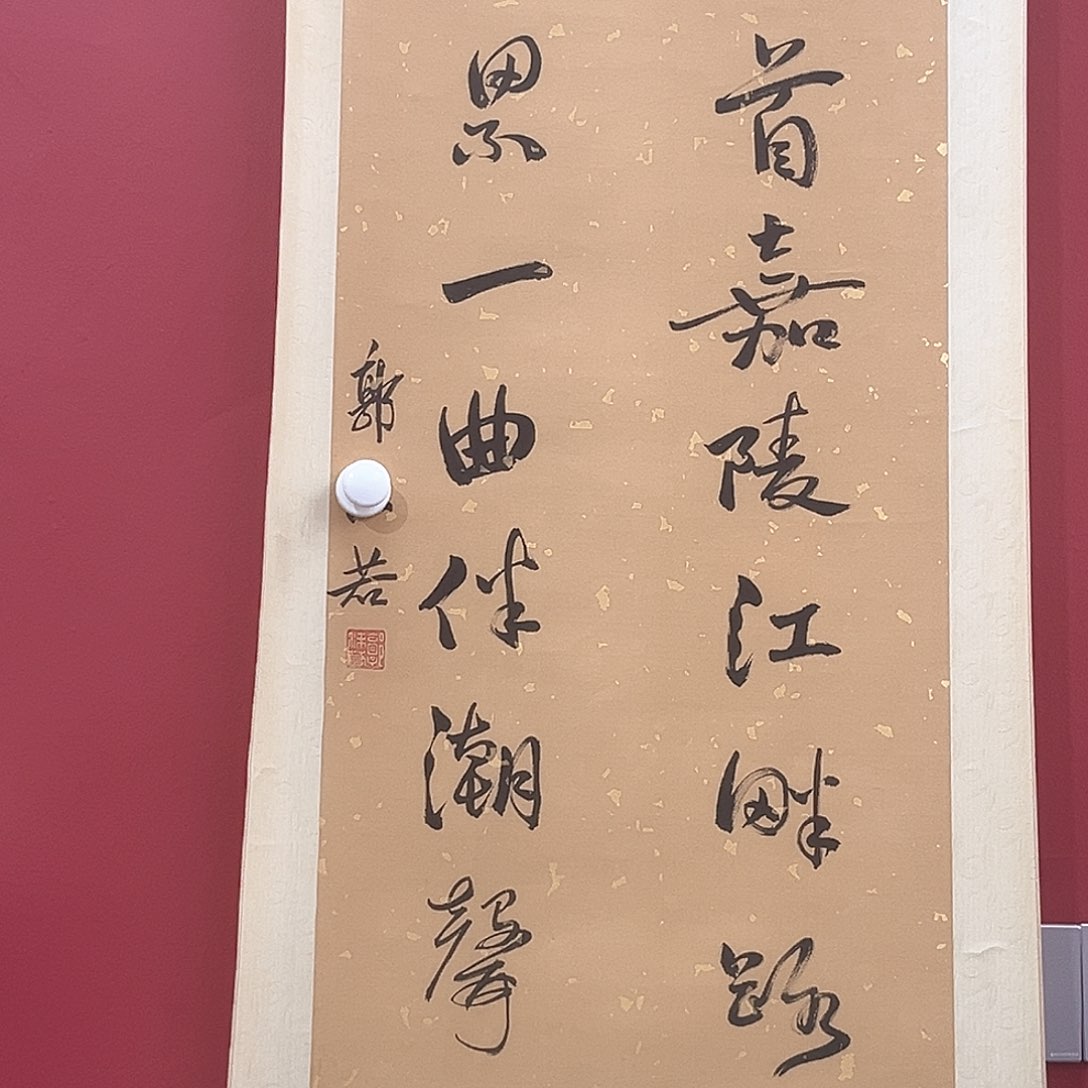 首嘉陵江畔路
累一曲伴潮聲
郭 若